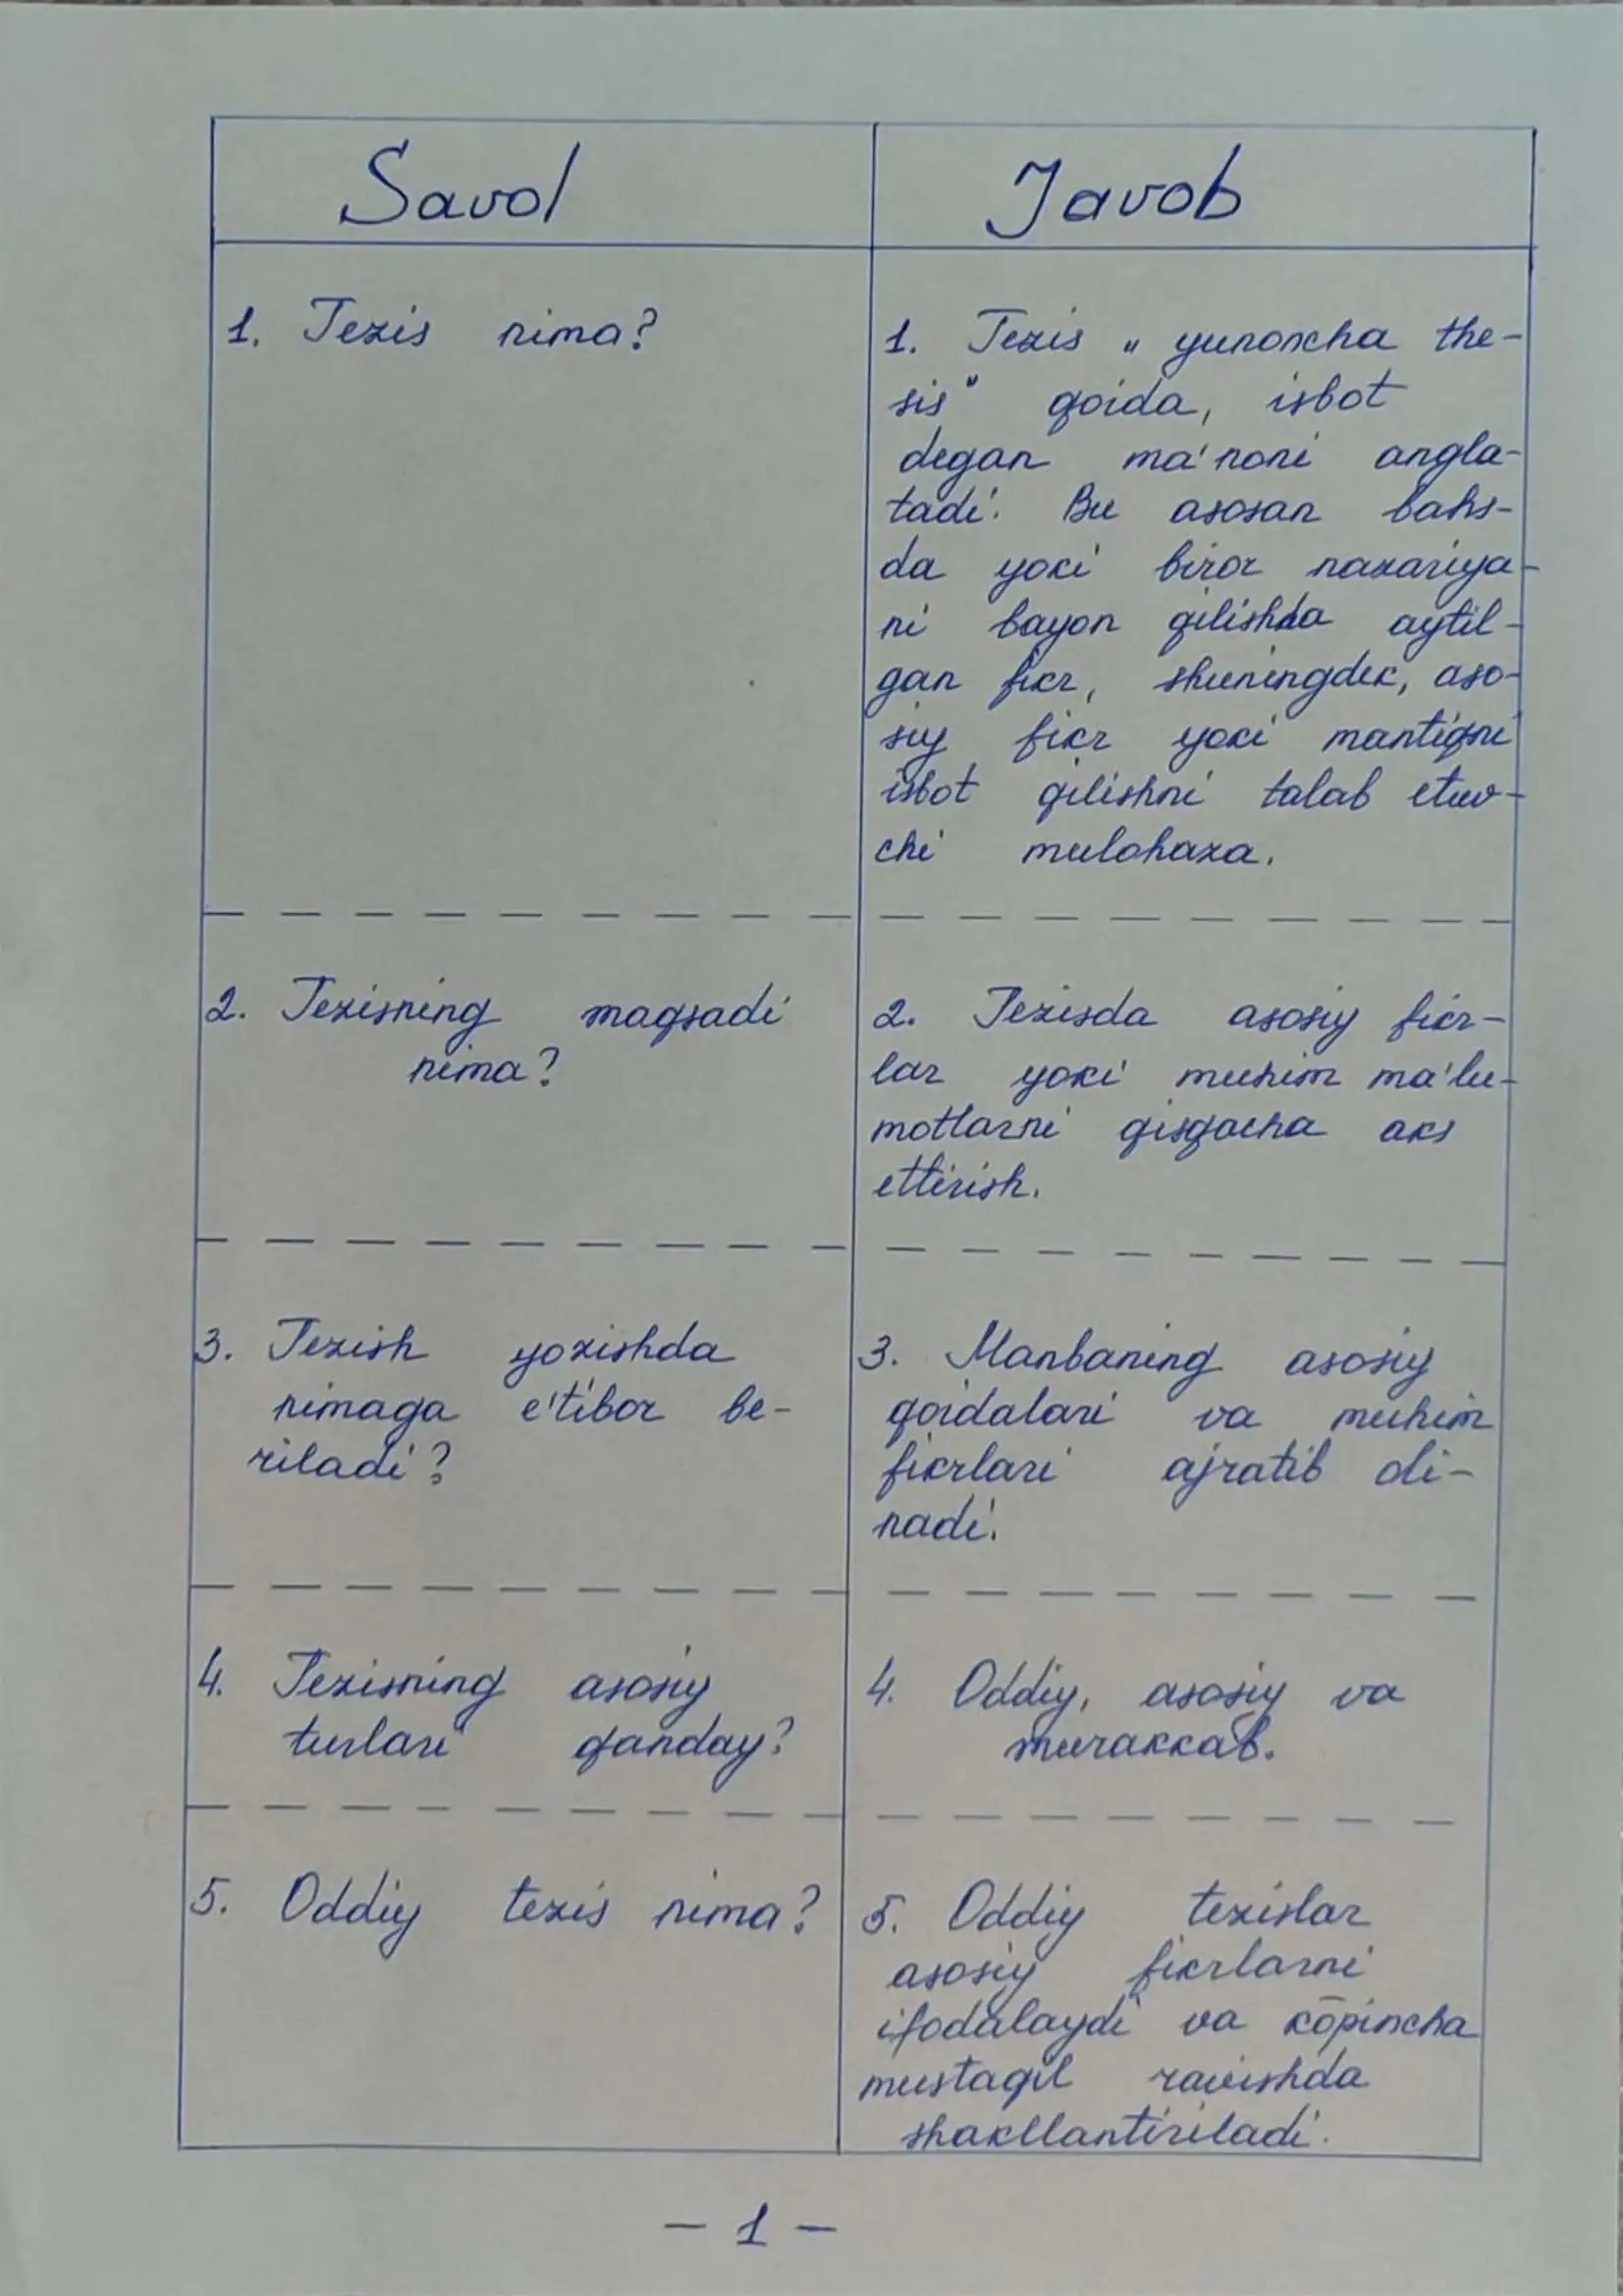 Savol
Javob
1. Tezis nima?
1. Tezis „ yunoncha the-
sis" qoida, isbot
degan ma'noni angla-
tadi. Bu asosan bahs-
da yoki biror nazariya-
ni bayon qilishda aytil-
gan fikr, shuningdek, aso-
siy fikr yoki mantiqni
isbot qilishni talab etuv-
chi mulohaza.
2. Tezisning maqsadi
nima?
2. Tezisda asosiy fikr-
lar yoki muhim ma'lu-
motlarni qisqacha aks
ettirish.
3. Tezish yozishda
nimaga e'tibor be-
riladi?
3. Manbaning asosiy
qoidalari va muhim
fikrlari ajratib oli-
nadi.
4. Tezisning asosiy
turlari qanday?
4. Oddiy, asosiy va
murakkab.
5. Oddiy tezis nima?
5. Oddiy tezislar
asosiy fikrlarni
ifodalaydi va kōpincha
mustaqil ravishda
shakllantiriladi.
- 1 -